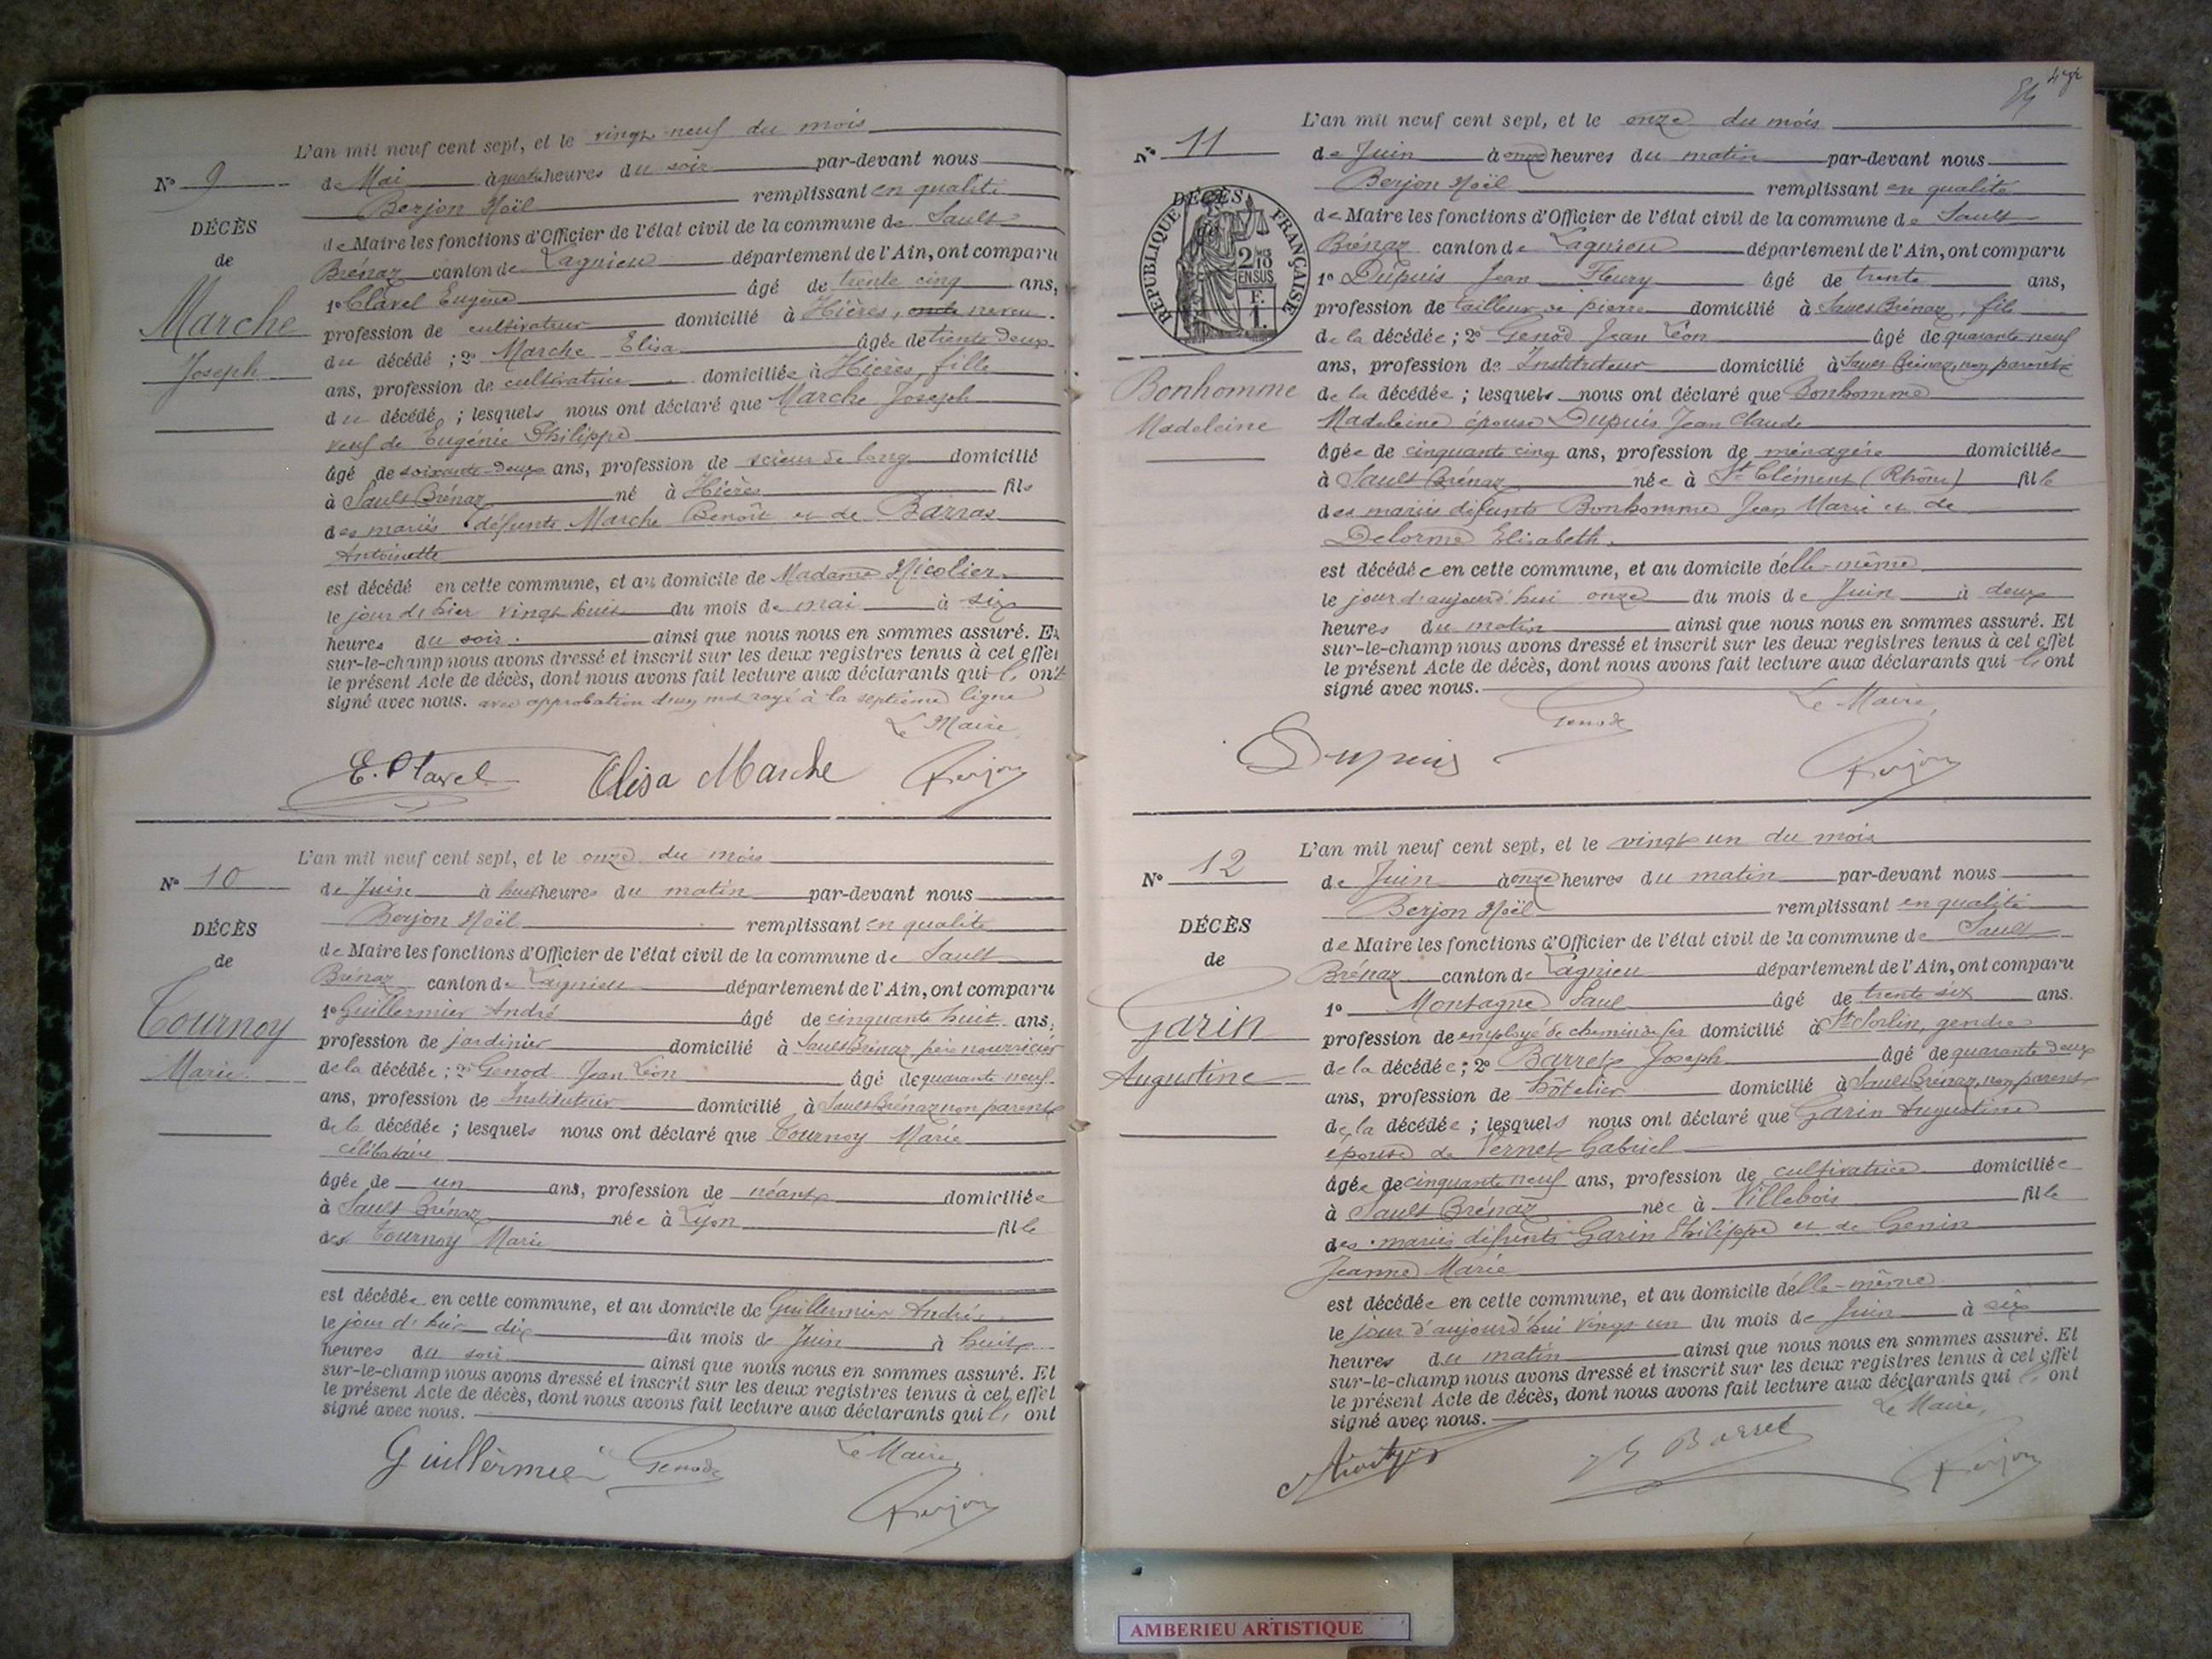 L'an mil neuf cent sept, et le vingt-neuf du mois
N° 9
de Mai à quatre heures du soir par-devant nous
Berjon Noël remplissant en qualité
DÉCÈS
de Maire les fonctions d'Officier de l'état civil de la commune de Sault
de
Brénaz canton de Lagnieu département de l'Ain, ont comparu
1° Clavel Eugène âgé de trente cinq ans,
Marche
profession de cultivateur domicilié à Hières, neveu
du décédé ; 2° Marche Elisa âgée de trente deux
Joseph
ans, profession de cultivatrice domiciliée à Hières, fille
du décédé ; lesquels nous ont déclaré que Marche Joseph
veuf de Eugénie Philippe
âgé de soixante-deux ans, profession de scieur de long domicilié
à Sault Brénaz né à Hières fils
des mariés défunts Marche Benoît et de Barras
Antoinette
est décédé en cette commune, et au domicile de Madame Nicolier
le jour de hier vingt huit du mois de mai à six
heures du soir. ainsi que nous nous en sommes assuré. Et
sur-le-champ nous avons dressé et inscrit sur les deux registres tenus à cet effet
le présent Acte de décès, dont nous avons fait lecture aux déclarants qui ont
signé avec nous. avec approbation d'un mot rayé à la septième ligne
Le Maire
E. Clavel Elisa Marche Berjon
L'an mil neuf cent sept, et le onze du mois
N° 10
de Juin à huit heures du matin par-devant nous
Berjon Noël remplissant en qualité
DÉCÈS
de Maire les fonctions d'Officier de l'état civil de la commune de Sault
de
Brénaz canton de Lagnieu département de l'Ain, ont comparu
1° Guillermier André âgé de cinquante huit ans,
Tournoy
profession de jardinier domicilié à Sault Brénaz père nourricier
de la décédée ; 2° Genod Jean Léon âgé de quarante neuf
Marie
ans, profession de Instituteur domicilié à Sault Brénaz non parent
de la décédée ; lesquels nous ont déclaré que Tournoy Marie
célibataire
âgée de un ans, profession de néant domiciliée
à Sault Brénaz née à Lyon fille
des Tournoy Marie
est décédée en cette commune, et au domicile de Guillermier André
le jour d'hier dix du mois de Juin à huit
heures du soir ainsi que nous nous en sommes assuré. Et
sur-le-champ nous avons dressé et inscrit sur les deux registres tenus à cet effet
le présent Acte de décès, dont nous avons fait lecture aux déclarants qui ont
signé avec nous.
Le Maire,
Guillermier Genod
Berjon
L'an mil neuf cent sept, et le onze du mois
N° 11
de Juin à onze heures du matin par-devant nous
Berjon Noël remplissant en qualité
DÉCÈS
RÉPUBLIQUE FRANÇAISE
de Maire les fonctions d'Officier de l'état civil de la commune de Sault
Brénaz canton de Lagnieu département de l'Ain, ont comparu
2/10 EN SUS
1° Dupuis Jean Fleury âgé de trente ans,
F. 1.
profession de tailleur de pierre domicilié à Sault Brénaz, fils
de la décédée ; 2° Genod Jean Léon âgé de quarante neuf
ans, profession de Instituteur domicilié à Sault Brénaz, non parent
Bonhomme
de la décédée ; lesquels nous ont déclaré que Bonhomme
Madeleine
Madeleine épouse Dupuis Jean Claude
âgée de cinquante cinq ans, profession de ménagère domiciliée
à Sault Brénaz née à St Clément (Rhône) fille
des mariés défunts Bonhomme Jean Marie et de
Delorme Elisabeth.
est décédée en cette commune, et au domicile d'elle-même
le jour d'aujourd'hui onze du mois de Juin à deux
heures du matin ainsi que nous nous en sommes assuré. Et
sur-le-champ nous avons dressé et inscrit sur les deux registres tenus à cet effet
le présent Acte de décès, dont nous avons fait lecture aux déclarants qui ont
signé avec nous.
Le Maire,
Genod
Dupuis Berjon
L'an mil neuf cent sept, et le vingt un du mois
N° 12
de Juin à onze heures du matin par-devant nous
Berjon Noël remplissant en qualité
DÉCÈS
de Maire les fonctions d'Officier de l'état civil de la commune de Sault
de
Brénaz canton de Lagnieu département de l'Ain, ont comparu
1° Montagne Paul âgé de trente six ans.
Garin
profession de employé de chemin de fer domicilié à St Sorlin, gendre
de la décédée ; 2° Barret Joseph âgé de quarante deux
Augustine
ans, profession de hôtelier domicilié à Sault Brénaz, non parent
de la décédée ; lesquels nous ont déclaré que Garin Augustine
épouse de Vernet Gabriel
âgée de cinquante neuf ans, profession de cultivatrice domiciliée
à Sault Brénaz née à Villebois fille
des mariés défunts Garin Philippe et de Genin
Jeanne Marie
est décédée en cette commune, et au domicile d'elle-même
le jour d'aujourd'hui vingt un du mois de Juin à six
heures du matin ainsi que nous nous en sommes assuré. Et
sur-le-champ nous avons dressé et inscrit sur les deux registres tenus à cet effet
le présent Acte de décès, dont nous avons fait lecture aux déclarants qui ont
signé avec nous.
Le Maire,
Barret Berjon
AMBERIEU ARTISTIQUE